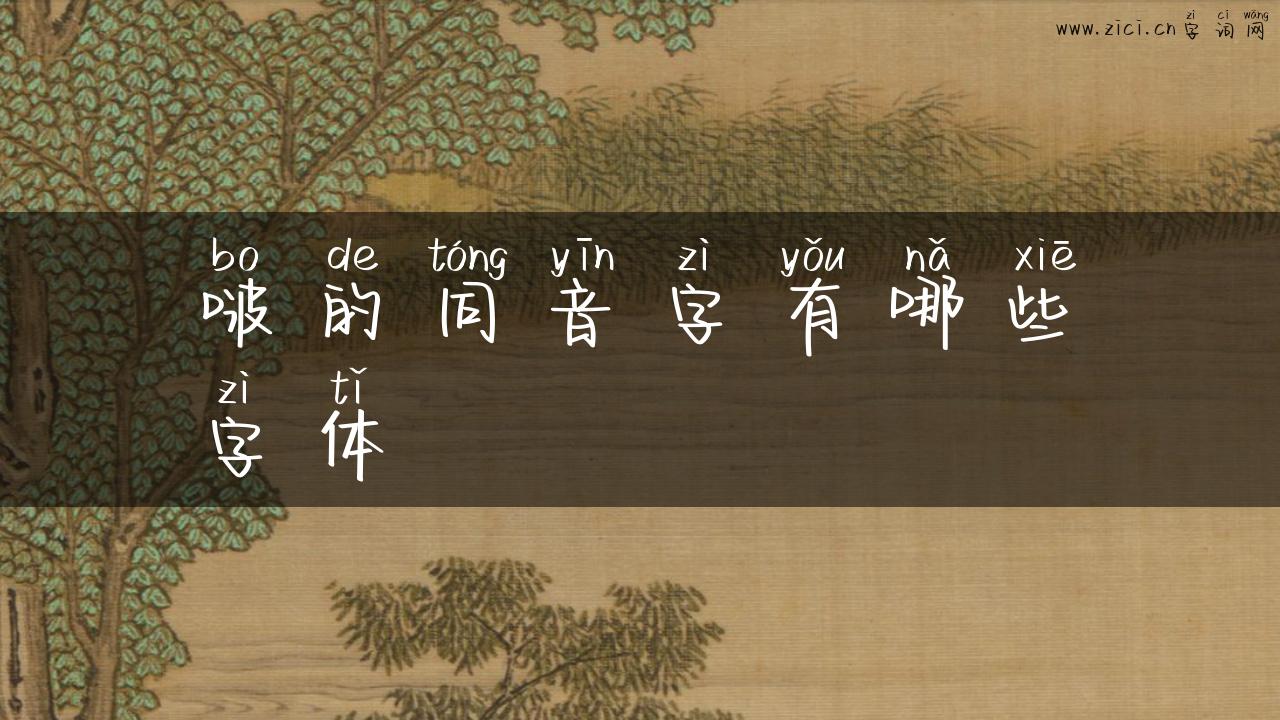 zì cí wǎng
www.zici.cn字词网
bo de tóng yīn zì yǒu nǎ xiē
啵的同音字有哪些
zì tǐ
字体